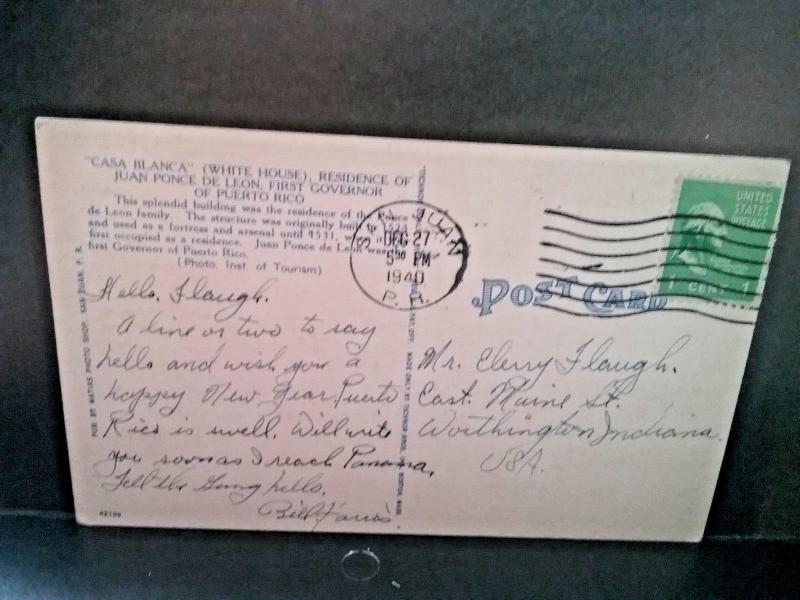 "CASA BLANCA" (WHITE HOUSE), RESIDENCE OF
JUAN PONCE DE LEON, FIRST GOVERNOR
OF PUERTO RICO
This splendid building was the residence of the Ponce
de Leon family. The structure was originally built
and used as a fortress and arsenal until 1531,
first occupied as a residence. Juan Ponce de Leon was
first Governor of Puerto Rico.
(Photo, Inst. of Tourism)
Hello, Flaugh.
A line or two to say
hello and wish you a
happy New Year. Puerto
Rico is swell. Will write
you soon as I reach Panama.
Tell the Gang hello.
Bill
62196
PUB. BY MATIAS PHOTO SHOP, SAN JUAN, P. R.
MADE ONLY BY TICHNOR BROS., INC., BOSTON, MASS.
SAN JUAN
DEC 27
5 PM
1940
P. R.
POST CARD
UNITED
STATES
POSTAGE
1 CENT 1
Mr. Elerry Flaugh.
East. Maine St.
Worthington Indiana.
USA.